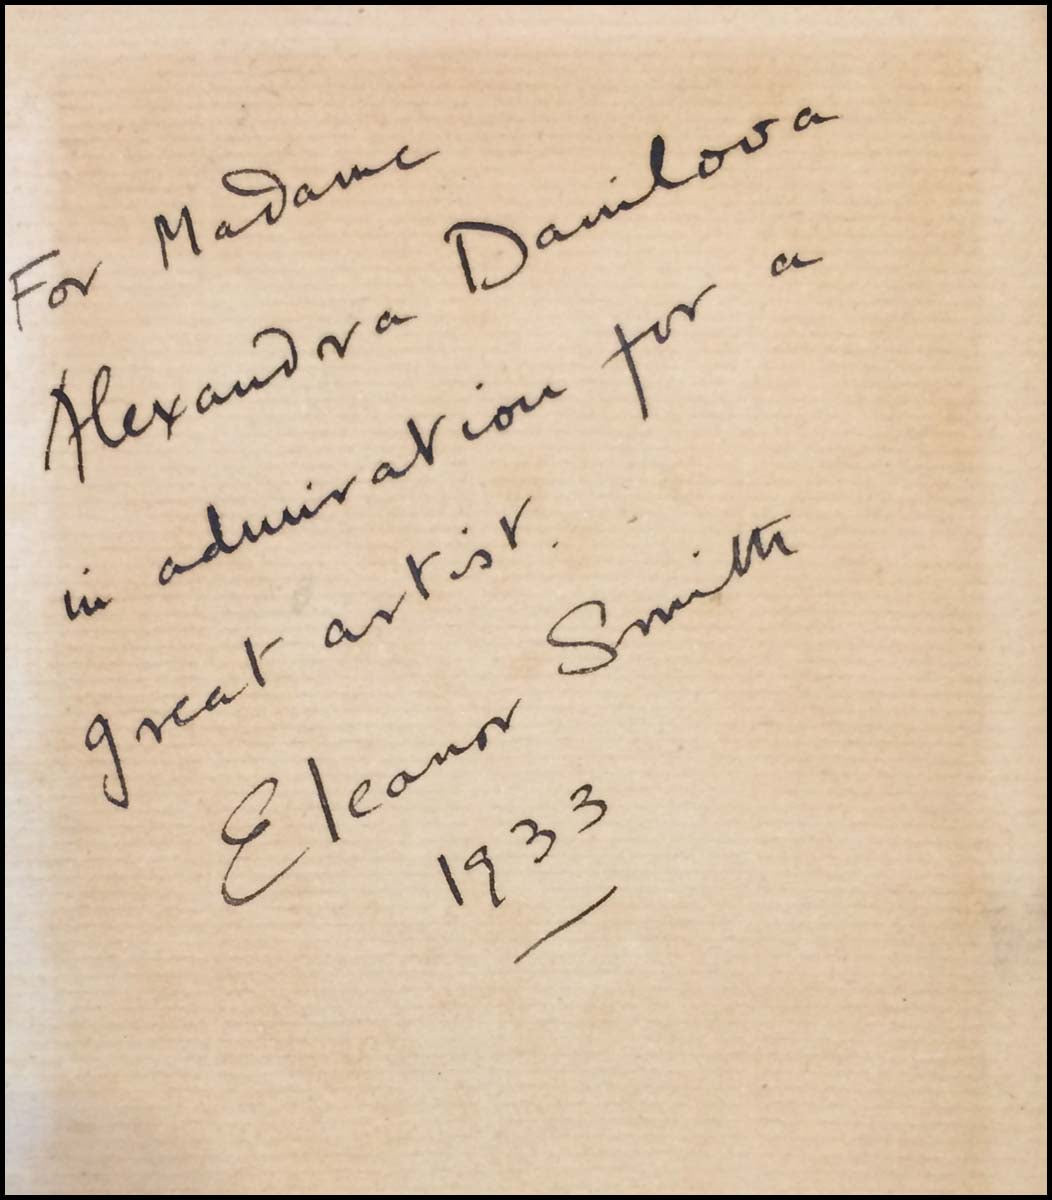 For Madame
Alexandra Danilova
in admiration for a
great artist.
Eleanor Smith
1933